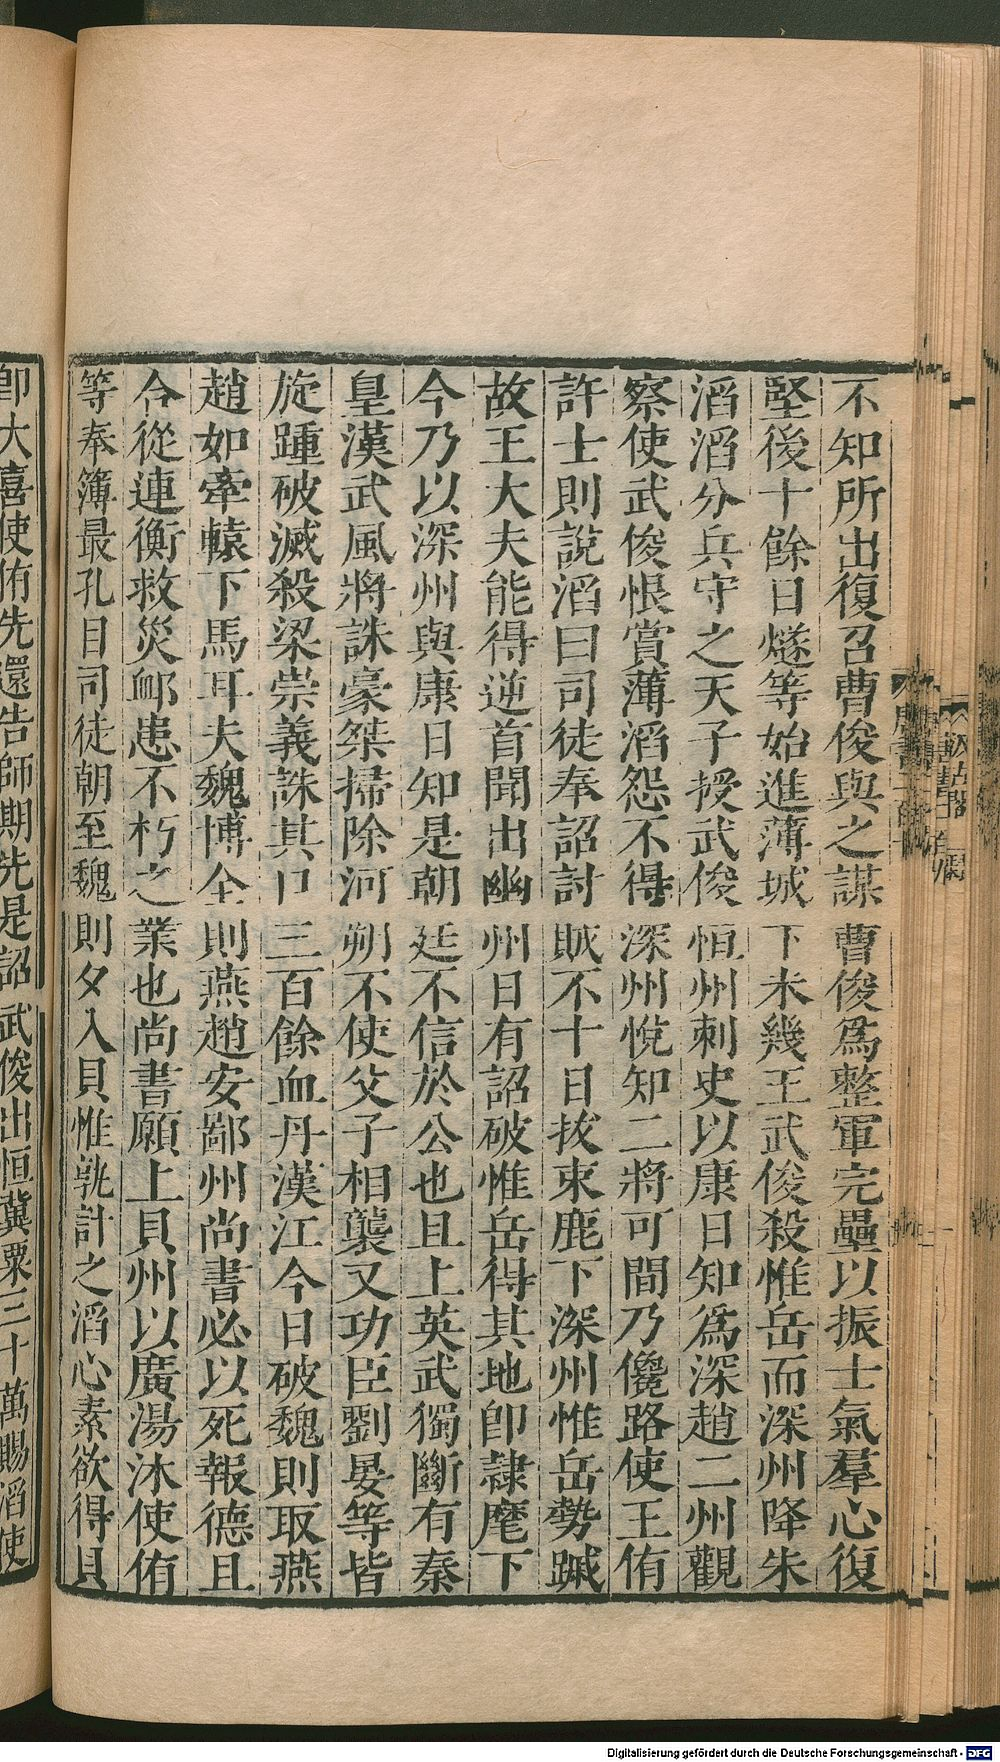 不知所出復召曹俊與之謀曹俊爲整軍完壘以振士氣羣心復
堅後十餘日燧等始進薄城下未幾王武俊殺惟岳而深州降朱
滔滔分兵守之天子授武俊恒州刺史以康日知爲深趙二州觀
察使武俊恨賞薄滔怨不得深州悅知二將可間乃儳路使王侑
許士則說滔曰司徒奉詔討賊不十日拔束鹿下深州惟岳勢蹙
故王大夫能得逆首聞出幽州日有詔破惟岳得其地卽隷麾下
今乃以深州與康日知是朝廷不信於公也且上英武獨斷有秦
皇漢武風將誅豪桀掃除河朔不使父子相襲又功臣劉晏等皆
旋踵破滅殺梁崇義誅其口三百餘血丹漢江今日破魏則取燕
趙如牽轅下馬耳夫魏博全則燕趙安鄙州尚書必以死報德且
合從連衡救災卹患不朽之業也尚書願上貝州以廣湯沐使侑
等奉簿最孔目司徒朝至魏則夕入貝惟孰計之滔心素欲得貝
卽大喜使侑先還告師期先是詔武俊出恒冀粟三十萬賜滔使
Digitalisierung gefördert durch die Deutsche Forschungsgemeinschaft - DFG